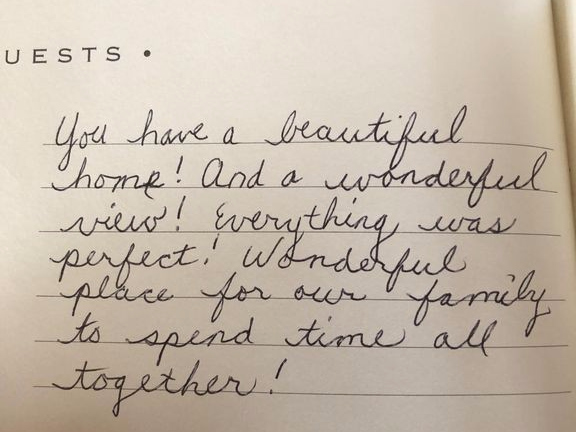 UESTS •
You have a beautiful
home! And a wonderful
view! Everything was
perfect! Wonderful
place for our family
to spend time all
together!